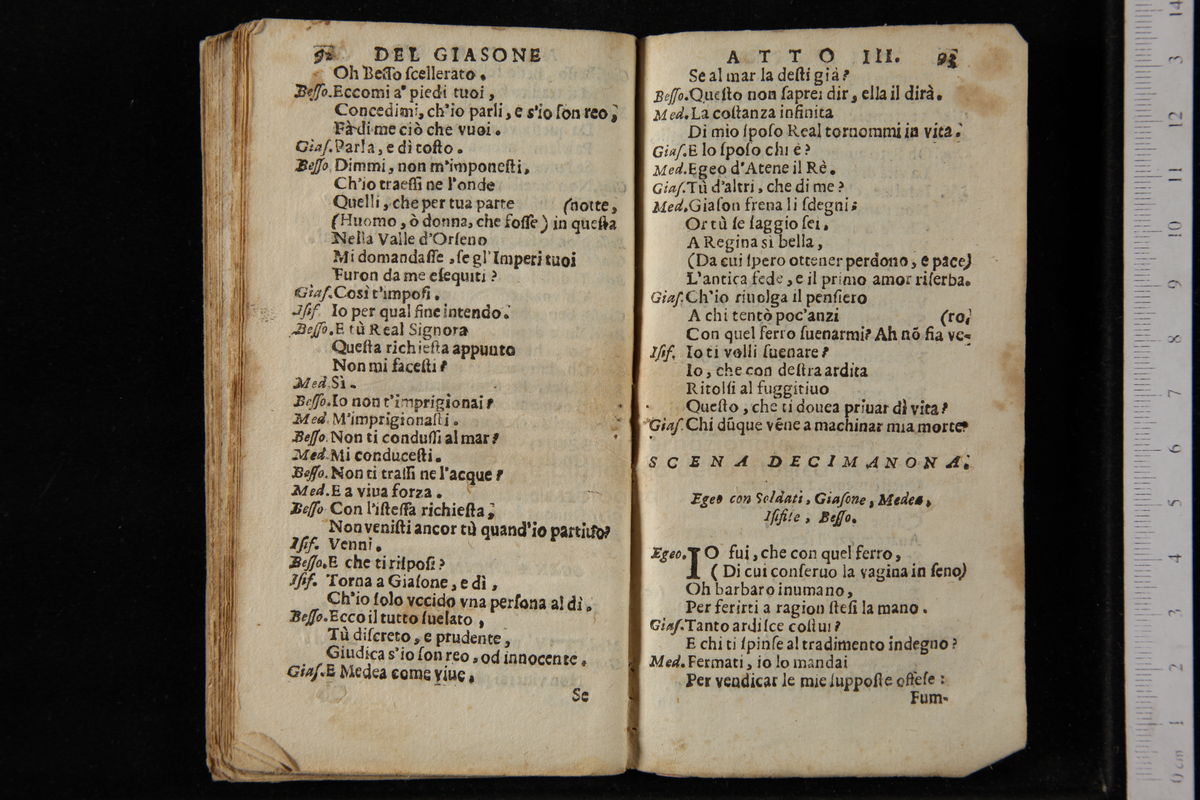 92 DEL GIASONE
Oh Beſſo ſcellerato.
Beſſo. Eccomi a' piedi tuoi,
Concedimi, ch'io parli, e s'io ſon reo;
Fà di me ciò che vuoi.
Giaſ. Parla, e dì toſto.
Beſſo. Dimmi, non m'imponeſti,
Ch'io traeſſi ne l'onde
Quelli, che per tua parte (notte,
(Huomo, ò donna, che foſſe) in queſta
Nella Valle d'Orſeno
Mi domandaſſe, ſe gl'Imperi tuoi
Furon da me eſequiti?
Giaſ. Così t'impoſi.
Iſif. Io per qual fine intendo.
Beſſo. E tù Real Signora
Queſta richieſta appunto
Non mi faceſti?
Med. Sì.
Beſſo. Io non t'imprigionai?
Med. M'imprigionaſti.
Beſſo. Non ti conduſſi al mar?
Med. Mi conduceſti.
Beſſo. Non ti traſſi ne l'acque?
Med. E a viua forza.
Beſſo. Con l'iſteſſa richieſta;
Non veniſti ancor tù quand'io partiſſo?
Iſif. Venni.
Beſſo. E che ti riſpoſi?
Iſif. Torna a Giaſone, e dì,
Ch'io ſolo vccido vna perſona al dì.
Beſſo. Ecco il tutto ſuelato,
Tù diſcreto, e prudente,
Giudica s'io ſon reo, od innocente.
Giaſ. E Medea come viue.
Se
ATTO III. 93
Se al mar la deſti già?
Beſſo. Queſto non ſaprei dir, ella il dirà.
Med. La coſtanza infinita
Di mio ſpoſo Real tornommi in vita.
Giaſ. E lo ſpoſo chi è?
Med. Egeo d'Atene il Rè.
Giaſ. Tù d'altri, che di me?
Med. Giaſon frena li ſdegni;
Or tù ſe ſaggio ſei.
A Regina sì bella,
(Da cui ſpero ottener perdono, e pace)
L'antica fede, e il primo amor riſerba.
Giaſ. Ch'io riuolga il penſiero
A chi tentò poc'anzi (ro,
Con quel ferro ſuenarmi? Ah nõ fia ve-
Iſif. Io ti volli ſuenare?
Io, che con deſtra ardita
Ritolſi al fuggitiuo
Queſto, che ti douea priuar dì vita?
Giaſ. Chi dũque vẽne a machinar mia morte?
SCENA DECIMANONA.
Egeo con Soldati, Giaſone, Medea,
Iſifile, Beſſo.
Egeo. IO fui, che con quel ferro,
(Di cui conſeruo la vagina in ſeno)
Oh barbaro inumano,
Per ferirti a ragion ſteſi la mano.
Giaſ. Tanto ardiſce coſtui?
E chi ti ſpinſe al tradimento indegno?
Med. Fermati, io lo mandai
Per vendicar le mie ſuppoſte offeſe:
Fum-